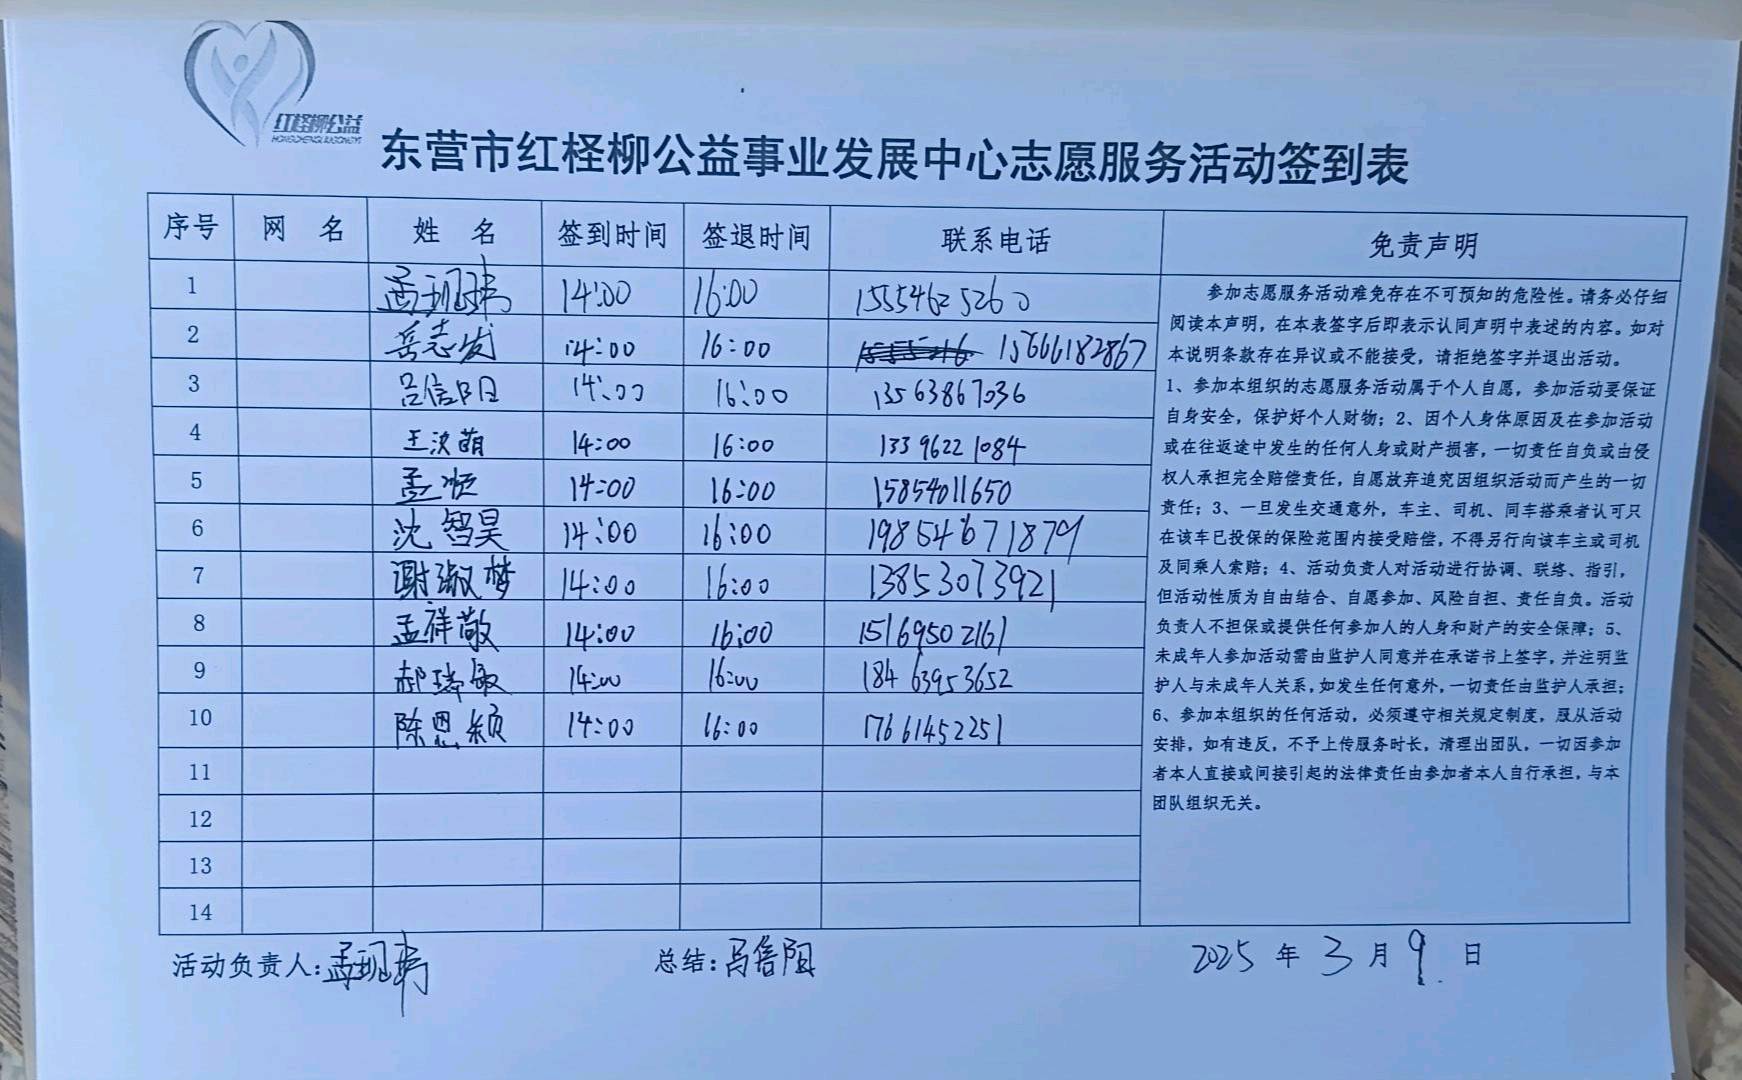 红柽柳公益
HONGCHENGLIUGONGYI
东营市红柽柳公益事业发展中心志愿服务活动签到表
序号 网 名 姓 名 签到时间 签退时间 联系电话 免责声明
1 14:00 16:00 15554625260
2 岳志发 14:00 16:00 15666182867
3 吕信阳 14:00 16:00 13563867036
4 14:00 16:00 13396221084
5 孟顺 14:00 16:00 15854011650
6 沈智昊 14:00 16:00 19854671879
7 谢淑梦 14:00 16:00 13853073921
8 孟祥敬 14:00 16:00 15169502161
9 郝瑞敏 14:00 16:00 18463953652
10 陈恩颖 14:00 16:00 17661452251
11
12
13
14
参加志愿服务活动难免存在不可预知的危险性。请务必仔细
阅读本声明，在本表签字后即表示认同声明中表述的内容。如对
本说明条款存在异议或不能接受，请拒绝签字并退出活动。
1、参加本组织的志愿服务活动属于个人自愿，参加活动要保证
自身安全，保护好个人财物；2、因个人身体原因及在参加活动
或在往返途中发生的任何人身或财产损害，一切责任自负或由侵
权人承担完全赔偿责任，自愿放弃追究因组织活动而产生的一切
责任；3、一旦发生交通意外，车主、司机、同车搭乘者认可只
在该车已投保的保险范围内接受赔偿，不得另行向该车主或司机
及同乘人索赔；4、活动负责人对活动进行协调、联络、指引，
但活动性质为自由结合、自愿参加、风险自担、责任自负。活动
负责人不担保或提供任何参加人的人身和财产的安全保障；5、
未成年人参加活动需由监护人同意并在承诺书上签字，并注明监
护人与未成年人关系，如发生任何意外，一切责任由监护人承担；
6、参加本组织的任何活动，必须遵守相关规定制度，服从活动
安排，如有违反，不予上传服务时长，清理出团队，一切因参加
者本人直接或间接引起的法律责任由参加者本人自行承担，与本
团队组织无关。
活动负责人： 总结： 2025 年 3 月 9 日